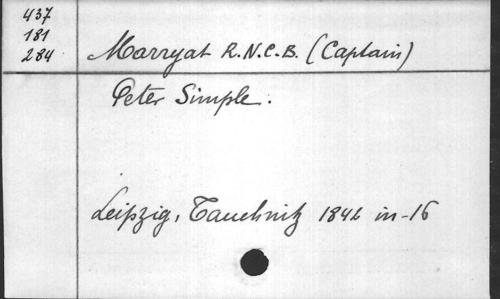 437
181
284
Marryat R.N.C.B. (Captain)
Peter Simple.
Leipzig, Tauchnitz 1842 in-16